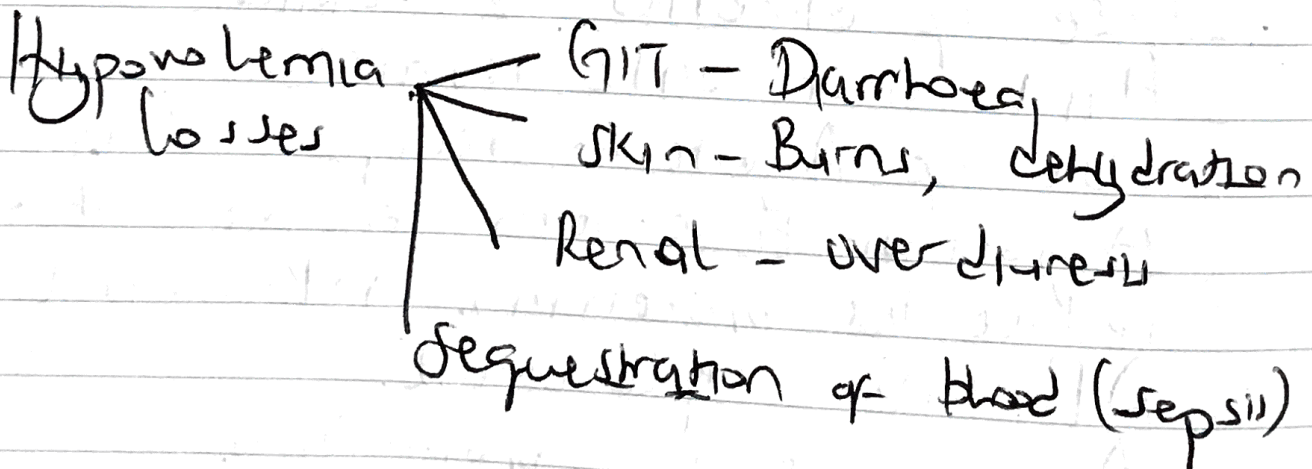 Hypovolemia
losses
GIT - Diarrhoea,
Skin - Burns, dehydration
Renal - over diuresis
Sequestration of blood (sepsis)